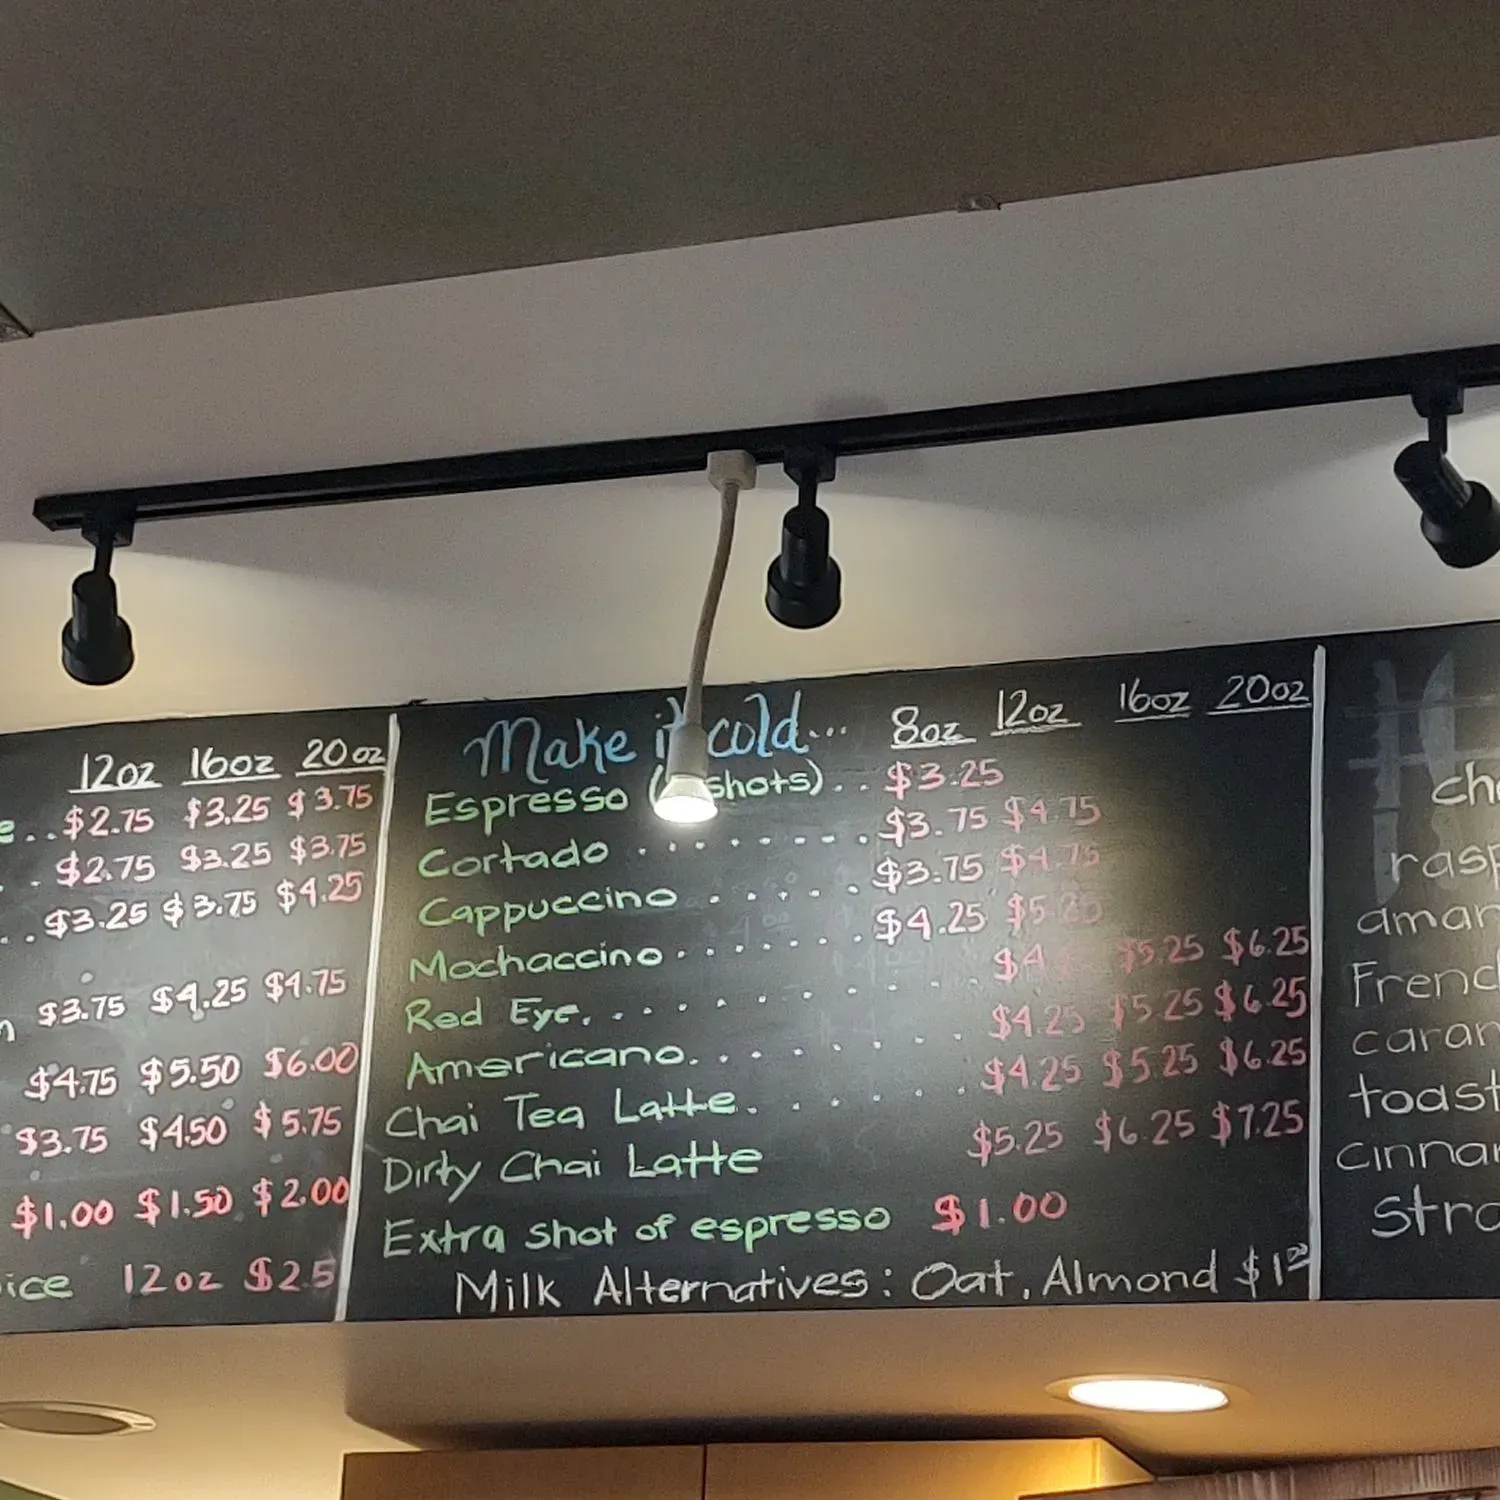 12oz 16oz 20oz
e..$2.75 $3.25 $3.75
. . $2.75 $3.25 $3.75
...$3.25 $3.75 $4.25
$3.75 $4.25 $4.75
$4.75 $5.50 $6.00
$3.75 $4.50 $5.75
$1.00 $1.50 $2.00
ice 12oz $2.5
Make it cold... 8oz 12oz 16oz 20oz
Espresso ( shots).. $3.25
Cortado ........ $3.75 $4.75
Cappuccino ...... $3.75 $4.75
Mochaccino........ $4.25
Red Eye........... $5.25 $6.25
Americano.......... $4.25 $5.25 $6.25
Chai Tea Latte........ $4.25 $5.25 $6.25
Dirty Chai Latte $5.25 $6.25 $7.25
Extra shot of espresso $1.00
Milk Alternatives: Oat, Almond $1.00
ch
rasp
amar
Frenc
caram
toast
cinnam
stra